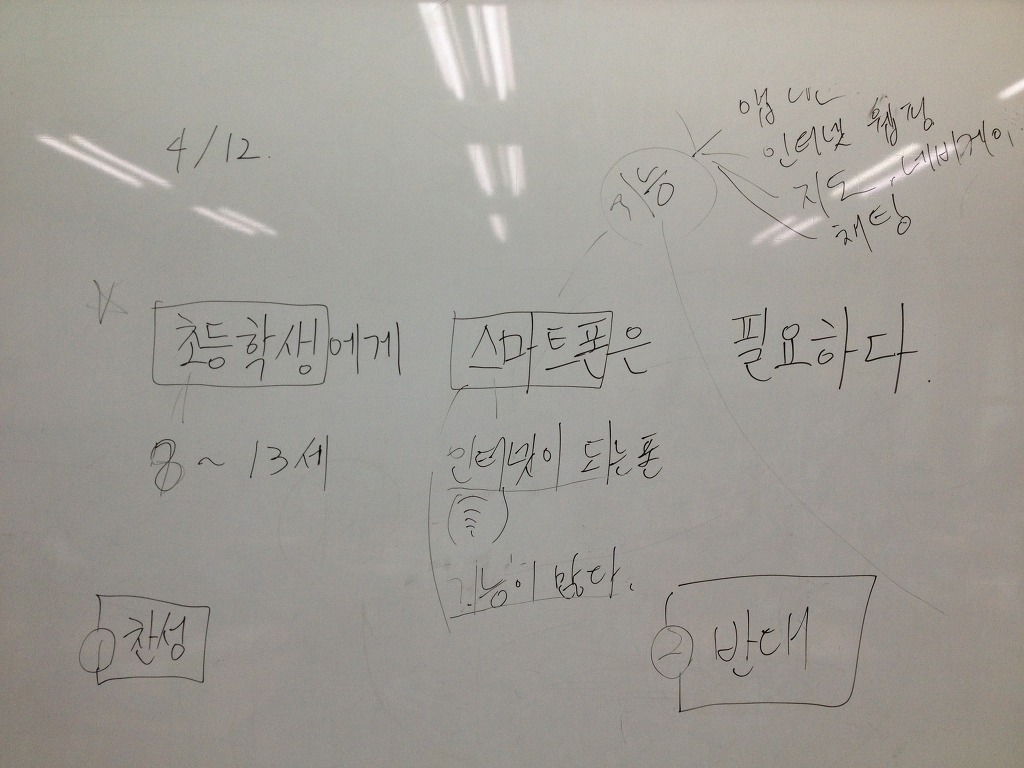 4/12.
앱
인터넷 웹
지도, 네비게이
채팅
기능
초등학생에게 스마트폰은 필요하다.
8~13세
인터넷이 되는폰
기능이 많다.
① 찬성
② 반대